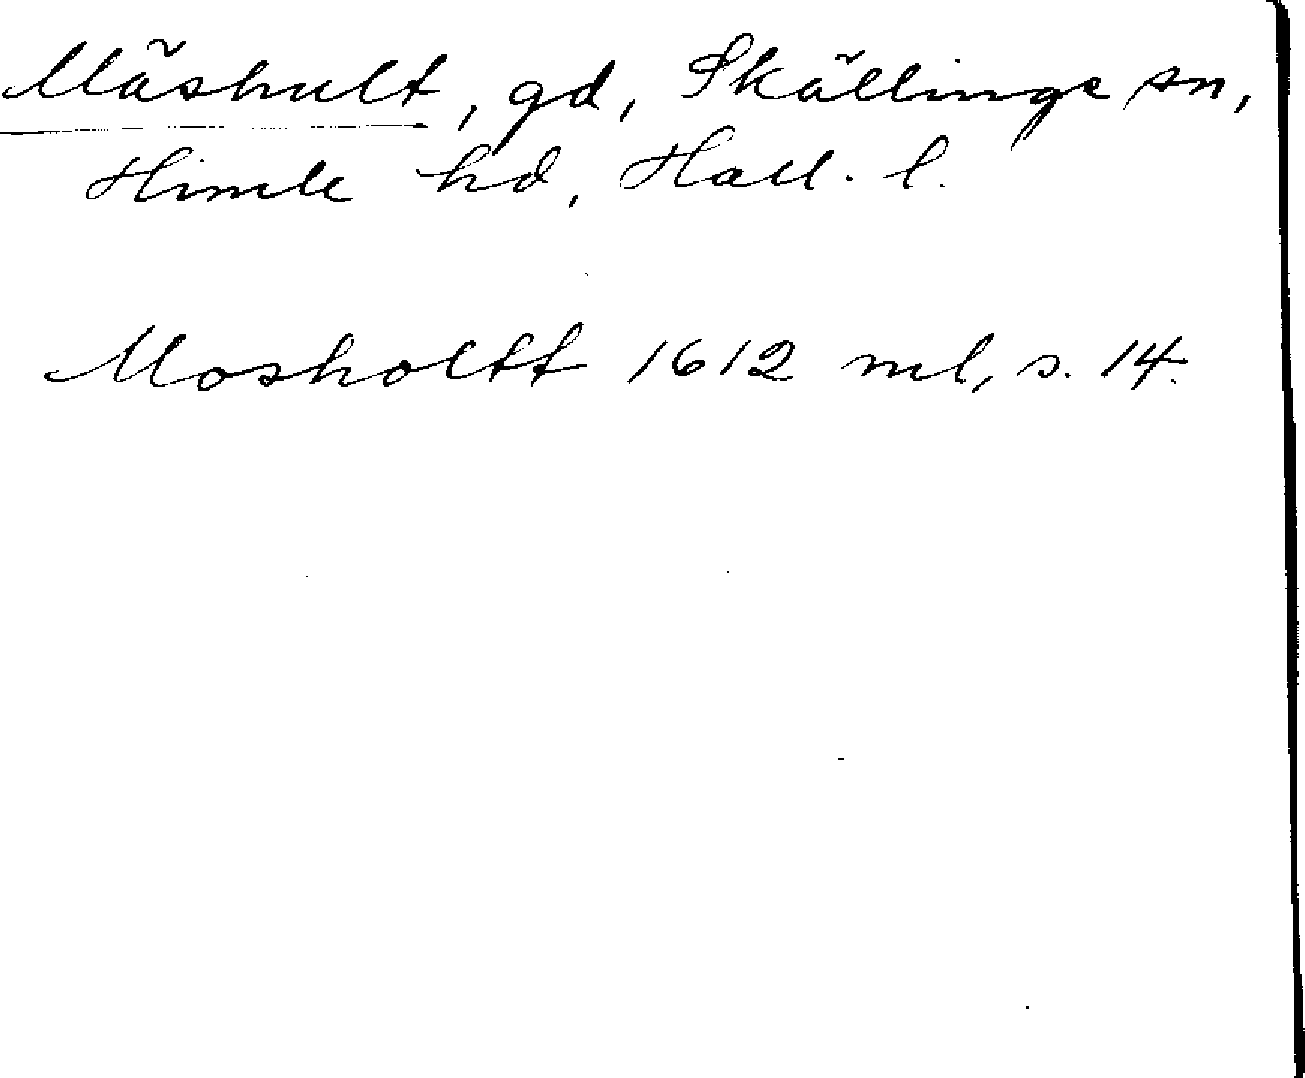 Måshult, gd, Skällinge sn,
Himle hd, Hall. l.
Mosholtt 1612 ml, s. 14.